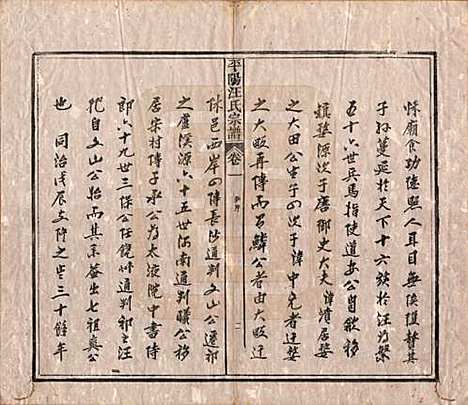 怵廟食功德照人耳目無俟複贅其
子孫蔓延於天下十六族於汪為繁
五十六世兵馬指使道安公自歙移
婺源次子唐御史大夫諱濆居婺
之大田公生子四次子諱中元者遷婺
之大畈再傳而召鱗公者由大畈迁
平陽汪氏宗譜 卷一
休邑西岸四傳長沙通判文山公遷祁
之盧溪源六十五世河南通判曦公移
居宋村傳子承公為太液院中書侍
郎六十九世三保公任饒州通判祁之汪
托自文山公始而其系盖出七祖爽公
也 同治戊辰文階之岁三十餘年